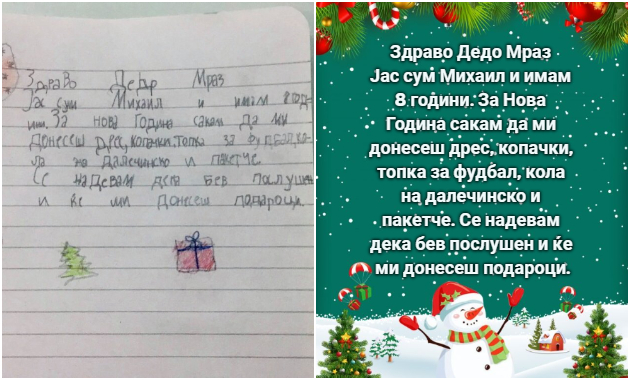 Здраво Дедо Мраз
Јас сум Михаил и имам 8 годи
ни. За нова Година сакам да ми
донесеш дрес, копачки, топка за фудбал, ко
ла на далечинско и пакетче.
Се надевам дека бев послушен
и ќе ми донесеш подароци.
Здраво Дедо Мраз
Јас сум Михаил и имам
8 години. За Нова
Година сакам да ми
донесеш дрес, копачки,
топка за фудбал, кола
на далечинско и
пакетче. Се надевам
дека бев послушен и ќе
ми донесеш подароци.